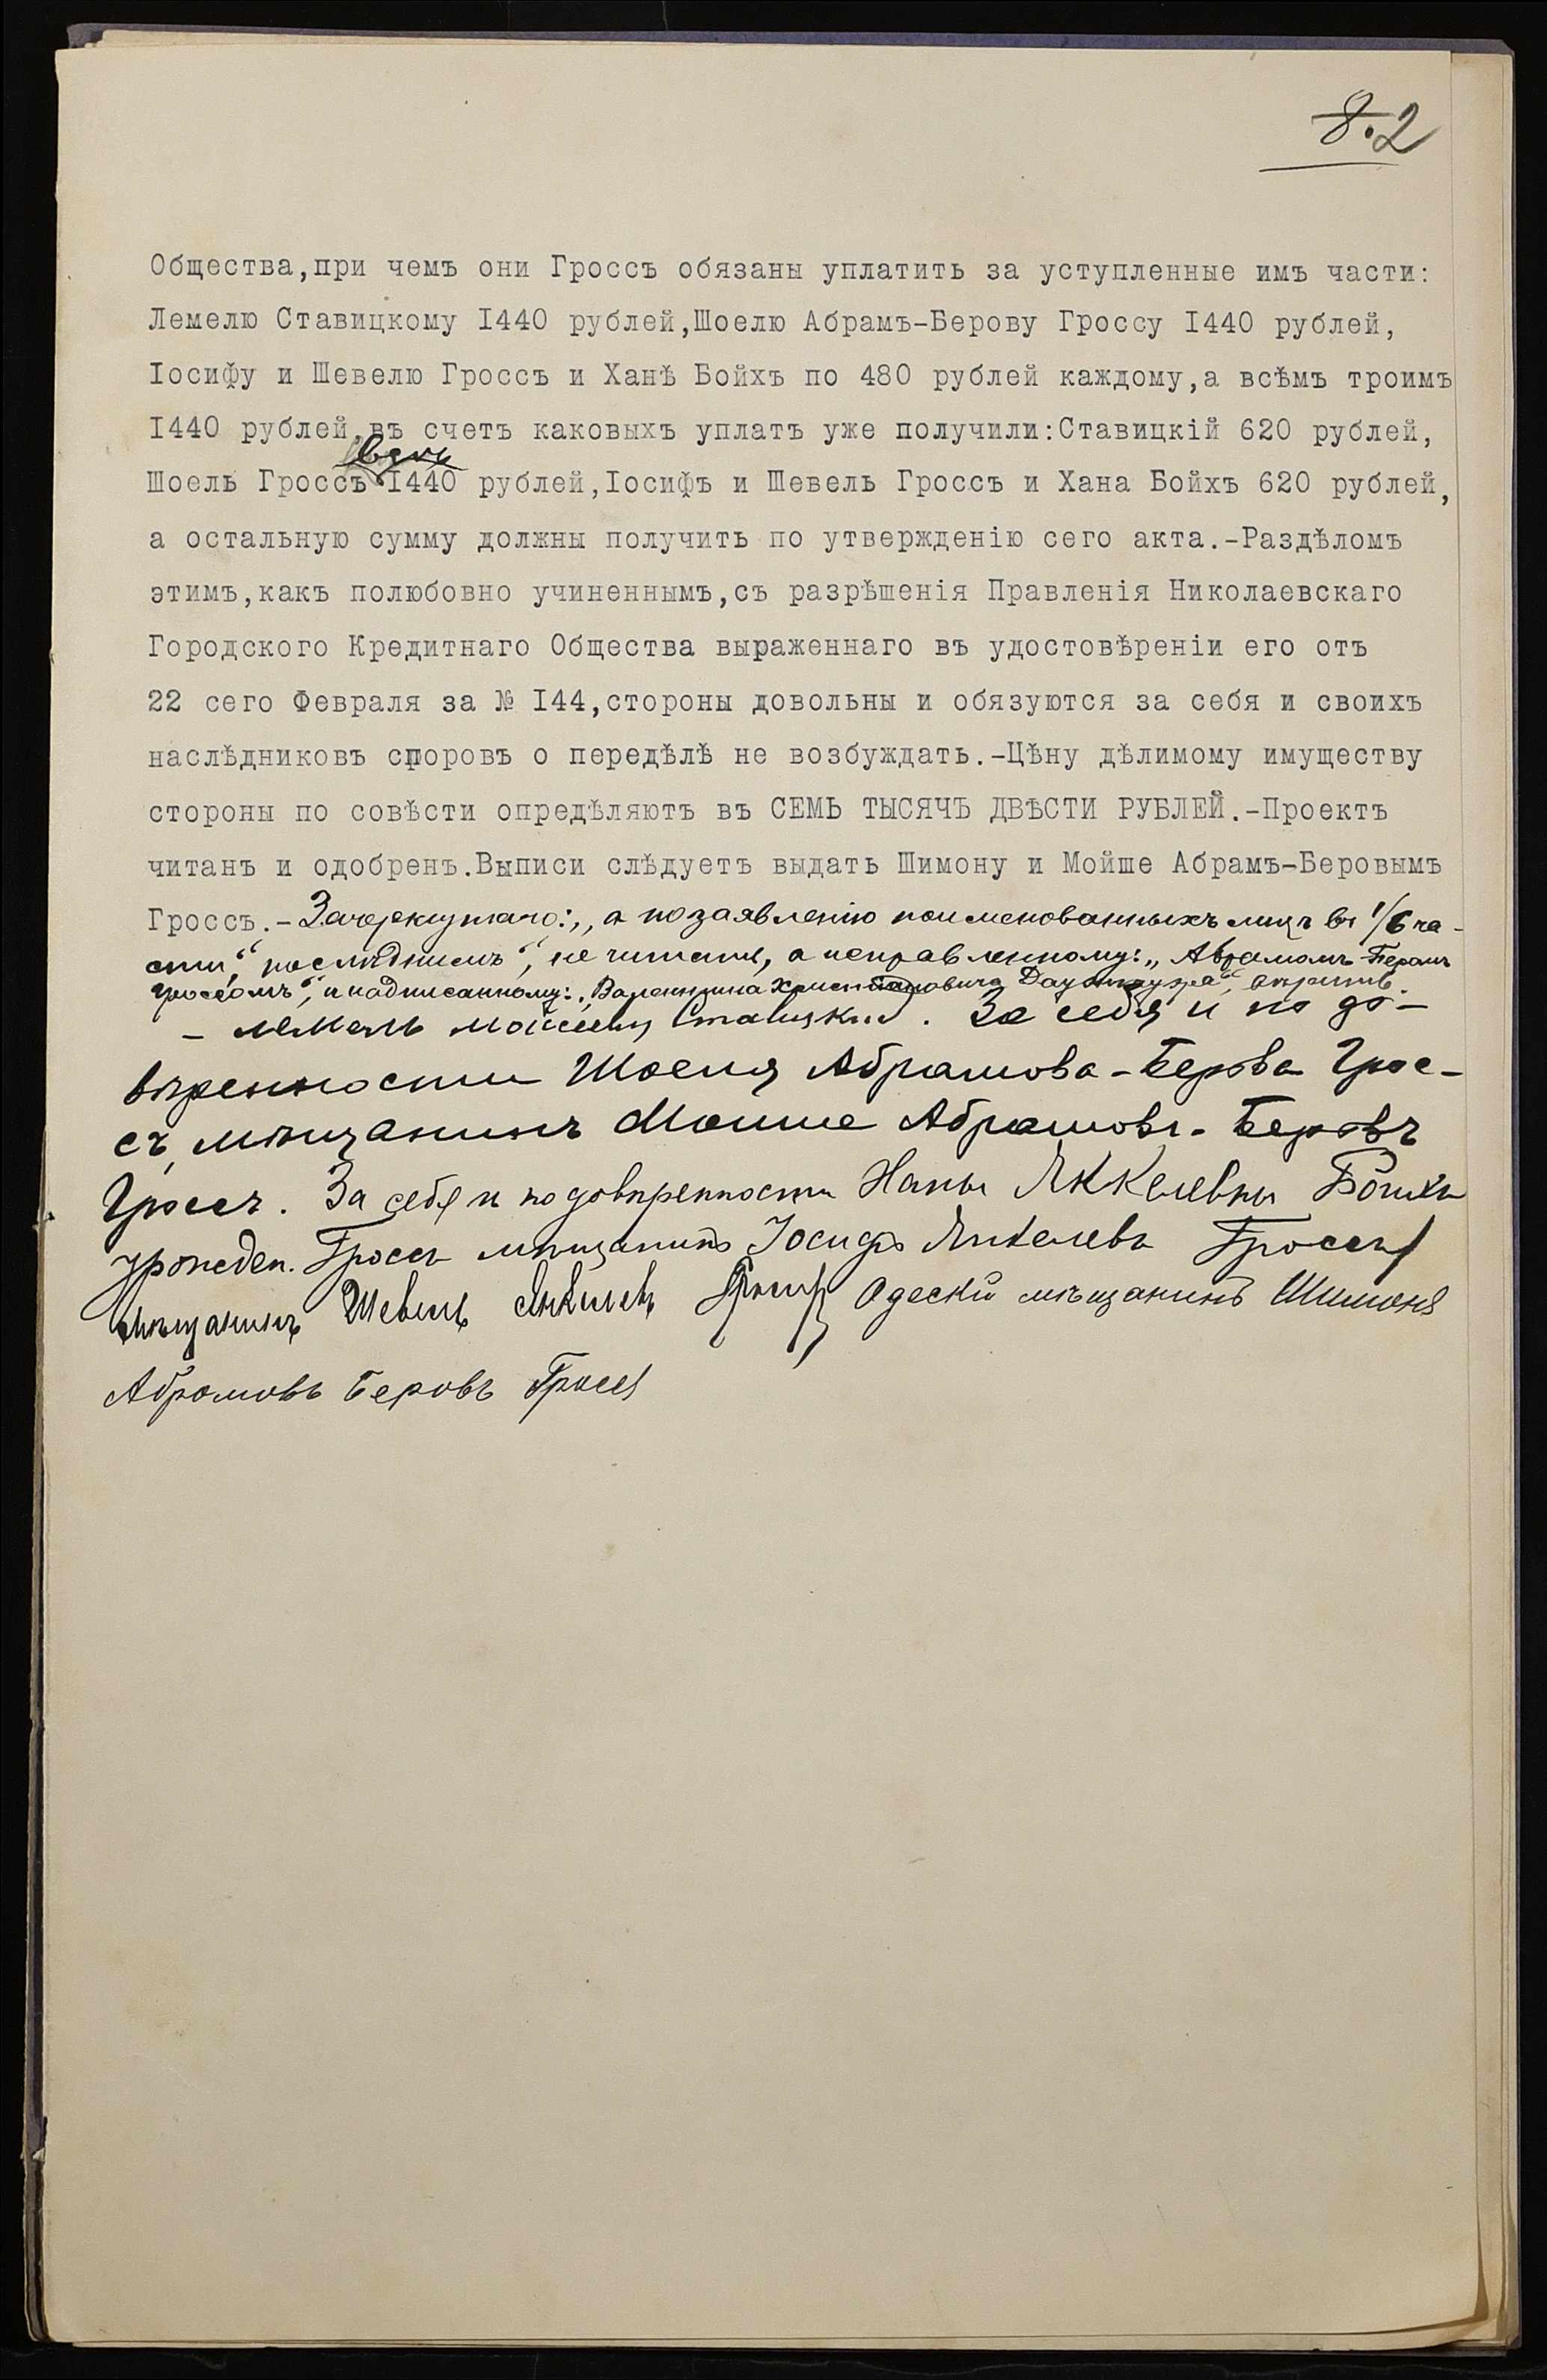 8.2
Общества,при чемъ они Гроссъ обязаны уплатить за уступленные имъ части:
Лемелю Ставицкому I440 рублей,Шоелю Абрамъ-Берову Гроссу I440 рублей,
Іосифу и Шевелю Гроссъ и Ханѣ Бойхъ по 480 рублей каждому,а всѣмъ троимъ
I440 рублей,въ счетъ каковыхъ уплатъ уже получили:Ставицкій 620 рублей,
Шоель Гроссъ I440 рублей,Іосифъ и Шевель Гроссъ и Хана Бойхъ 620 рублей,
а остальную сумму должны получить по утвержденію сего акта.-Раздѣломъ
этимъ,какъ полюбовно учиненнымъ,съ разрѣшенія Правленія Николаевскаго
Городского Кредитнаго Общества выраженнаго въ удостовѣреніи его отъ
22 сего Февраля за № I44,стороны довольны и обязуются за себя и своихъ
наслѣдниковъ споровъ о передѣлѣ не возбуждать.-Цѣну дѣлимому имуществу
стороны по совѣсти опредѣляютъ въ СЕМЬ ТЫСЯЧЪ ДВѢСТИ РУБЛЕЙ.-Проектъ
читанъ и одобренъ.Выписи слѣдуетъ выдать Шимону и Мойше Абрамъ-Беровымъ
Гроссъ.-Зачеркнутаго: „а по заявленію поименованныхъ лицъ въ 1/6 ча-
сти“, „послѣднимъ“, не читать, а исправленному: „Абрамомъ-Беромъ
Гроссомъ“, и надписанному: „Валентина Христіановича“ вѣрить.
- Лемель Мойсеевъ Ставицкій. За себя и по до-
вѣренности Шоеля Абрамова-Берова Грос-
съ, мѣщанинъ Моише Абрамовъ-Беровъ
Гроссъ. За себя и по довѣренности Ханы Янкелевны Бойхъ
урожден. Гроссъ мѣщанинъ Іосифъ Янкелевъ Гроссъ
мѣщанинъ Шевель Янкелевъ Гроссъ Одескій мѣщанинъ Шимонъ
Абрамовъ Беровъ Гроссъ